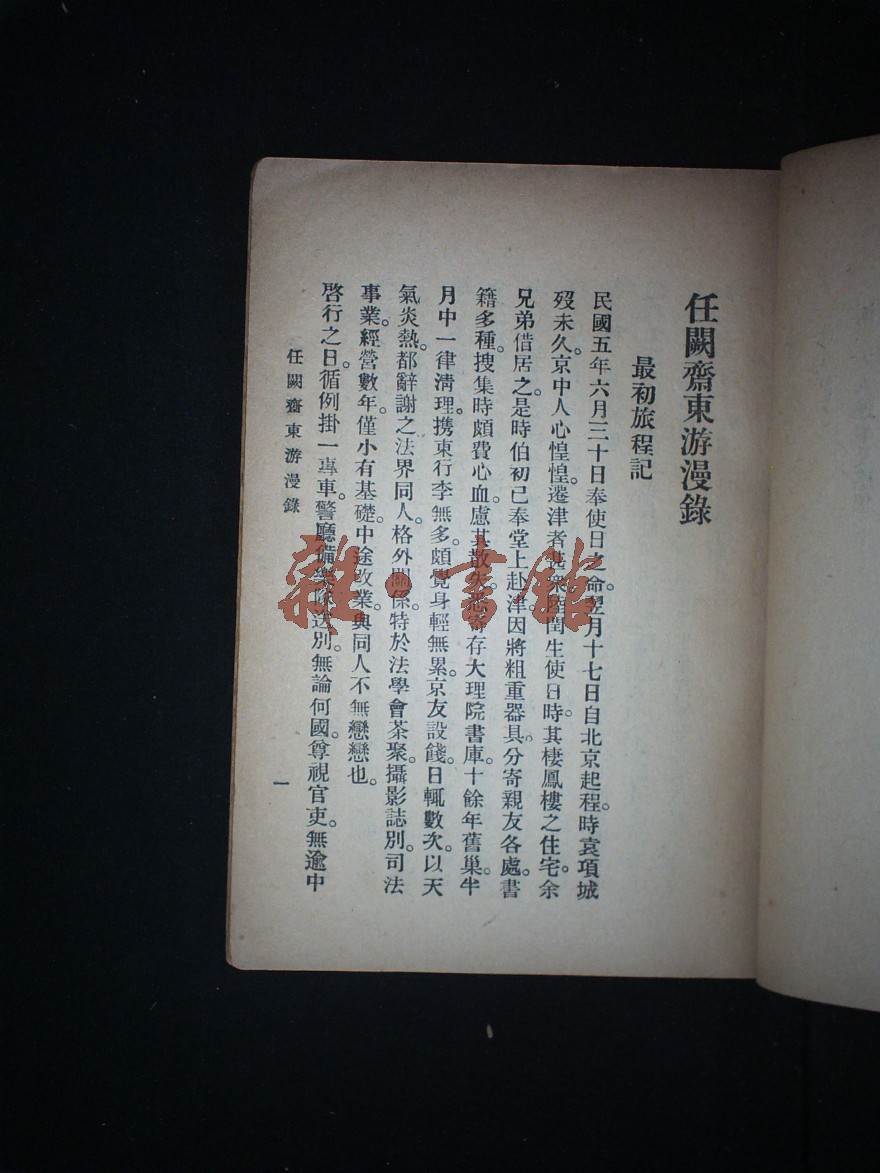 任闕齋東游漫錄
最初旅程記
民國五年六月三十日奉使日之命。翌月十七日自北京起程。時袁項城
歿未久。京中人心惶惶。遷津者甚衆。陸閏生使日時。其棲鳳樓之住宅。余
兄弟借居之。是時伯初已奉堂上赴津。因將粗重器具。分寄親友各處。書
籍多種。搜集時頗費心血。慮其散失。悉寄存大理院書庫。十餘年舊巢。半
月中一律淸理。携東行李無多。頗覺身輕無累。京友設餞。日輒數次。以天
氣炎熱。都辭謝之。法界同人。格外關係。特於法學會茶聚。攝影誌別。司法
事業。經營數年。僅小有基礎。中途改業。與同人不無戀戀也。
啓行之日。循例掛一專車。警廳備樂隊送別。無論何國。尊視官吏。無逾中
任闕齋東游漫錄
一
雜·書館